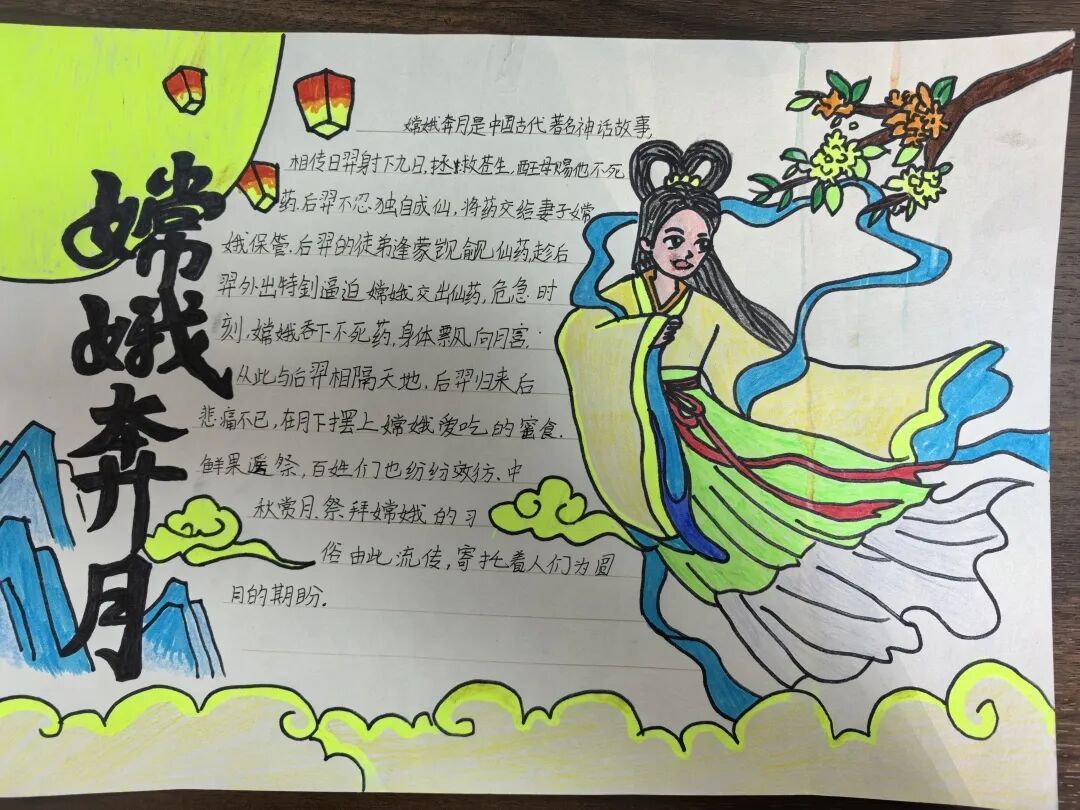 嫦娥奔月
嫦娥奔月是中国古代著名神话故事,
相传日羿射下九日,拯救苍生,母赐他不死
药.后羿不忍独自成仙,将药交给妻子嫦
娥保管.后羿的徒弟逢蒙觊觎仙药,趁后
羿外出特剑逼迫嫦娥交出仙药,危急时
刻,嫦娥吞下不死药,身体飘向月宫;
从此与后羿相隔天地.后羿归来后
悲痛不已,在月下摆上嫦娥爱吃的蜜食.
鲜果遥祭,百姓们也纷纷效仿.中
秋赏月.祭拜嫦娥的习
俗由此流传,寄托着人们为圆
月的期盼.